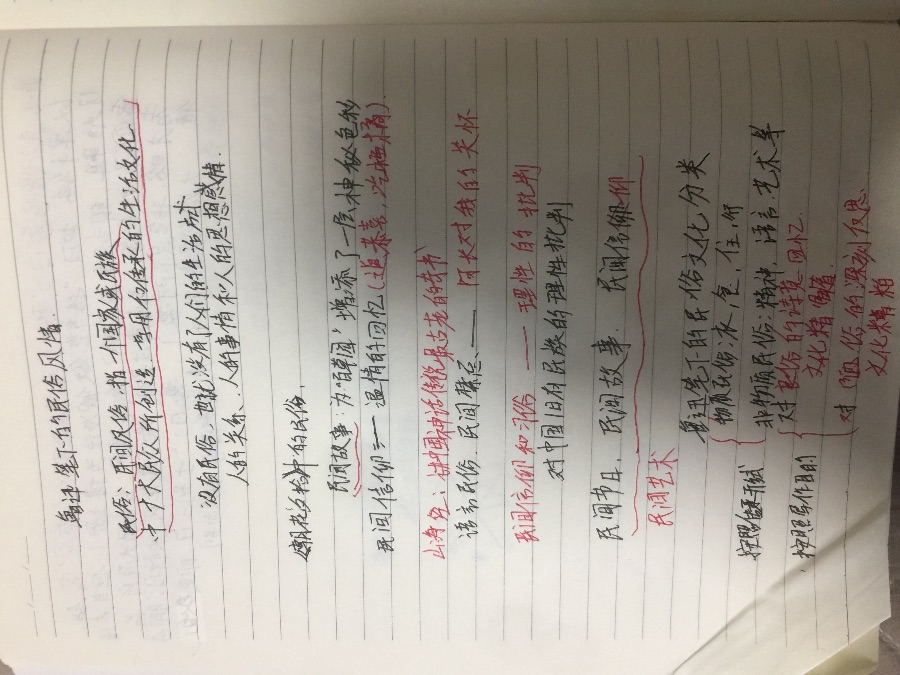 鲁迅笔下的民俗风情.
民俗: 民间风俗. 指一个国家或民族
中广大民众所创造、享用和传承的生活文化
没有民俗,也就没有了人们的生活方式
人的关系、人的事情和人的思想感情.
朝花夕拾中的民俗.
民间故事: 为"百草园"增添了一层神秘色彩
民间信仰: — 温情的回忆
山海经: 讲中国神话传说最古老的书
语言民俗. 民间禁忌 — 阿长对我的关怀
民间信仰和习俗 — 理性的批判
对中国旧有民族的理性批判
民间节日、民间故事. 民间信仰
民间艺术
鲁迅笔下的民俗文化分类
物质民俗: 衣, 食, 住, 行
按照
非物质民俗: 精神, 语言, 艺术等
对良俗的诗意回忆
文化精髓
按照写作目的
对陋俗的深刻反思
文化糟粕